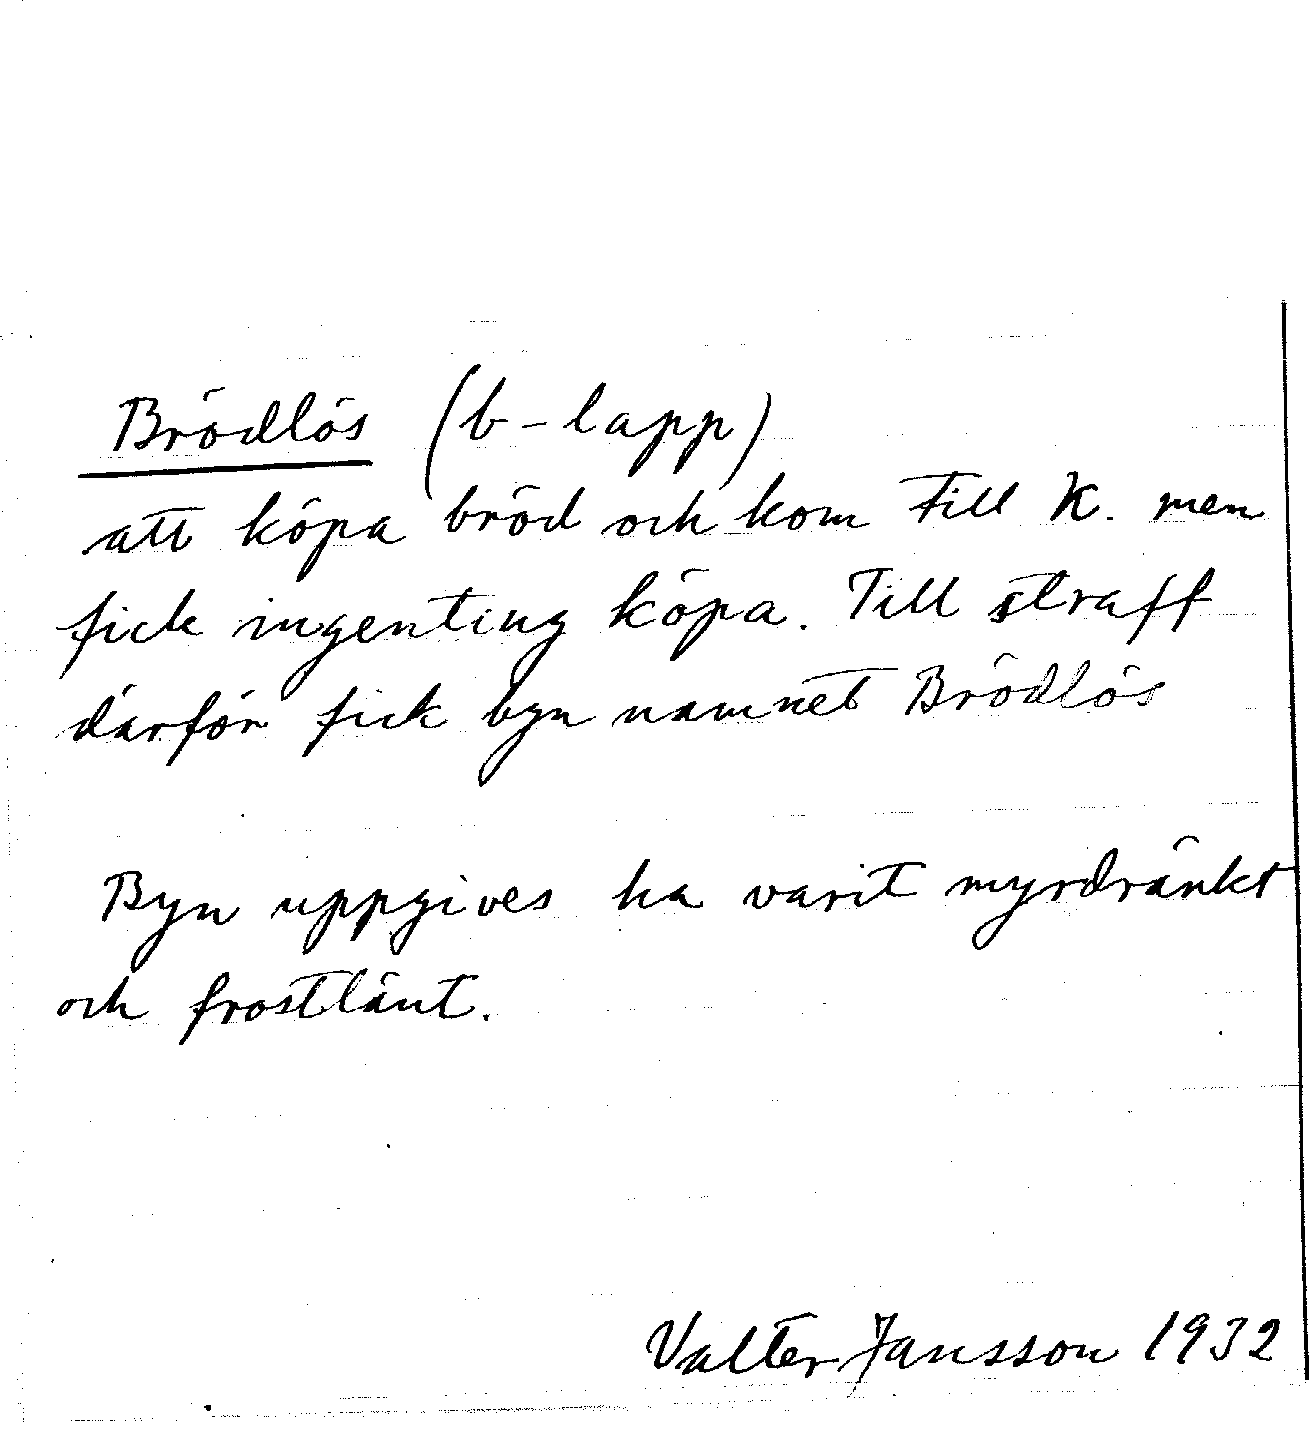 Brödlös (b-lapp)
att köpa bröd och kom till K. men
fick ingenting köpa. Till straff
därför fick byn namnet Brödlös
Byn uppgives ha varit myrdränkt
och frostlänt.
Valter Jansson 1932